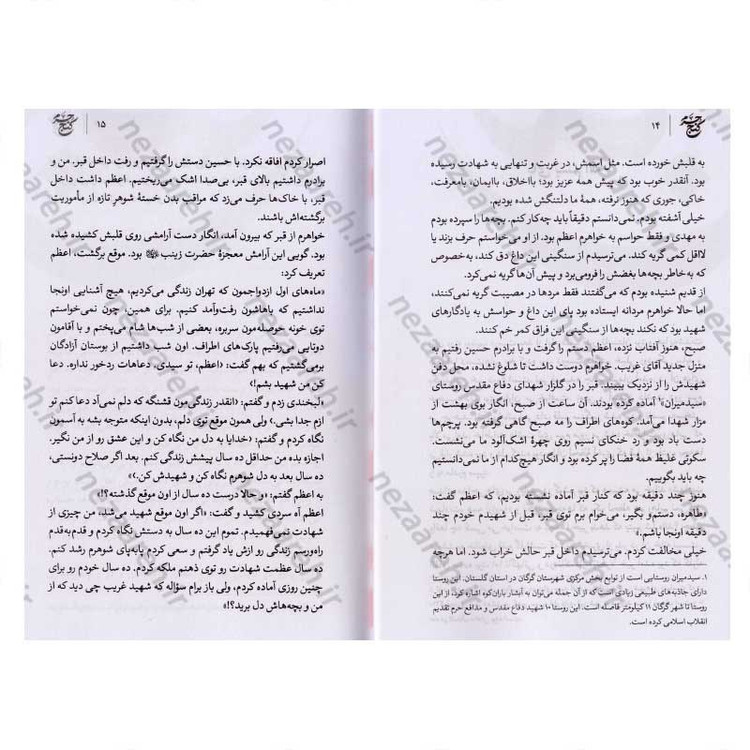 ۱۴
به قلبش خورده است. مثل اسمش، در غربت و تنهایی به شهادت رسیده
بود. آنقدر خوب بود که پیش همه عزیز بود؛ بااخلاق، باایمان، بامعرفت،
خاکی، جوری که هنوز نرفته، همهٔ ما دلتنگش شده بودیم.
خیلی آشفته بودم. نمی‌دانستم دقیقاً باید چه‌کار کنم. بچه‌ها را سپرده بودم
به مهدی و فقط حواسم به خواهرم اعظم بود. از او می‌خواستم حرف بزند یا
لااقل کمی گریه کند. می‌ترسیدم از سنگینی این داغ دق کند، به‌خصوص
که به‌خاطر بچه‌ها بغضش را فرومی‌برد و پیش آن‌ها گریه نمی‌کرد.
از قدیم شنیده بودم که می‌گفتند فقط مردها در مصیبت گریه نمی‌کنند،
اما حالا خواهرم مردانه ایستاده بود پای این داغ و حواسش به یادگارهای
شهید بود که نکند بچه‌ها از سنگینی این فراق کمر خم کنند.
صبح، هنوز آفتاب نزده، اعظم دستم را گرفت و با برادرم حسین رفتیم به
منزل جدید آقای غریب. خواهرم دوست داشت تا شلوغ نشده، محل دفن
شهیدش را از نزدیک ببیند. قبر را در گلزار شهدای دفاع مقدس روستای
«سیدمیران»۱ آماده کرده بودند. آن ساعت از صبح، انگار بوی بهشت از
مزار شهدا می‌آمد. کوه‌های اطراف را مه صبح گاهی گرفته بود. پرچم‌ها
دست باد بود و رد خنکای نسیم روی چهرهٔ اشک‌آلود ما می‌نشست.
سکوتی غلیظ همهٔ فضا را پر کرده بود و انگار هیچ‌کدام از ما نمی‌دانستیم
چه باید بگوییم.
هنوز چند دقیقه بود که کنار قبر آماده نشسته بودیم، که اعظم گفت:
«طاهره، دستم‌و بگیر، می‌خوام برم توی قبر، قبل از شهیدم خودم چند
دقیقه اونجا باشم.»
خیلی مخالفت کردم. می‌ترسیدم داخل قبر حالش خراب شود. اما هرچه
۱. سیدمیران روستایی است از توابع بخش مرکزی شهرستان گرگان در استان گلستان. این روستا
دارای جاذبه‌های طبیعی زیادی است که از آن جمله می‌توان به آبشار باران‌کوه اشاره کرد. از این
روستا تا شهر گرگان ۱۱ کیلومتر فاصله است. این روستا ۱۰ شهید دفاع مقدس و مدافع حرم تقدیم
انقلاب اسلامی کرده است.
۱۵
اصرار کردم افاقه نکرد. با حسین دستش را گرفتیم و رفت داخل قبر. من و
برادرم داشتیم بالای قبر، بی‌صدا اشک می‌ریختیم. اعظم داشت داخل
قبر، با خاک‌ها حرف می‌زد که مراقب بدن خستهٔ شوهرِ تازه از مأموریت
برگشته‌اش باشند.
خواهرم از قبر که بیرون آمد، انگار دست آرامشی روی قلبش کشیده شده
بود. گویی این آرامش معجزهٔ حضرت زینب بود. موقع برگشت، اعظم
تعریف کرد:
«ماه‌های اول ازدواجمون که تهران زندگی می‌کردیم، هیچ آشنایی اونجا
نداشتیم که باهاشون رفت‌وآمد کنیم. برای همین، چون نمی‌خواستم
توی خونه حوصله‌مون سربره، بعضی از شب‌ها شام می‌پختم و با آقامون
دوتایی می‌رفتیم پارک‌های اطراف. اون شب داشتیم از بوستان آزادگان
برمی‌گشتیم که بهم گفت: «اعظم، تو سیدی، دعاهات ردخور نداره. دعا
کن من شهید بشم!»
«لبخندی زدم و گفتم: «انقدر زندگی‌مون قشنگه که دلم نمی‌آد دعا کنم تو
ازم جدا بشی.» ولی همون موقع توی دلم، بدون اینکه متوجه بشه به آسمون
نگاه کردم و گفتم: «خدایا به دل من نگاه کن و این عشق رو از من نگیر.
اجازه بده من حداقل ده سال پیشش زندگی کنم. بعد اگر صلاح دونستی،
ده سال بعد به دل شوهرم نگاه کن و شهیدش کن.»»
به اعظم گفتم: «و حالا درست ده سال از اون موقع گذشته؟!»
اعظم آه سردی کشید و گفت: «اگر اون موقع شهید می‌شد، من چیزی از
شهادت نمی‌فهمیدم. تموم این ده سال به دستش نگاه کردم و قدم‌به‌قدم
راه‌ورسم زندگی رو ازش یاد گرفتم و سعی کردم پابه‌پای شوهرم رشد کنم.
ده سال عظمت شهادت رو توی ذهنم ملکه کردم. ده سال خودم رو برای
چنین روزی آماده کردم، ولی باز برام سؤاله که شهید غریب چی دید که از
من و بچه‌هاش دل برید؟!»
nezaareh.ir